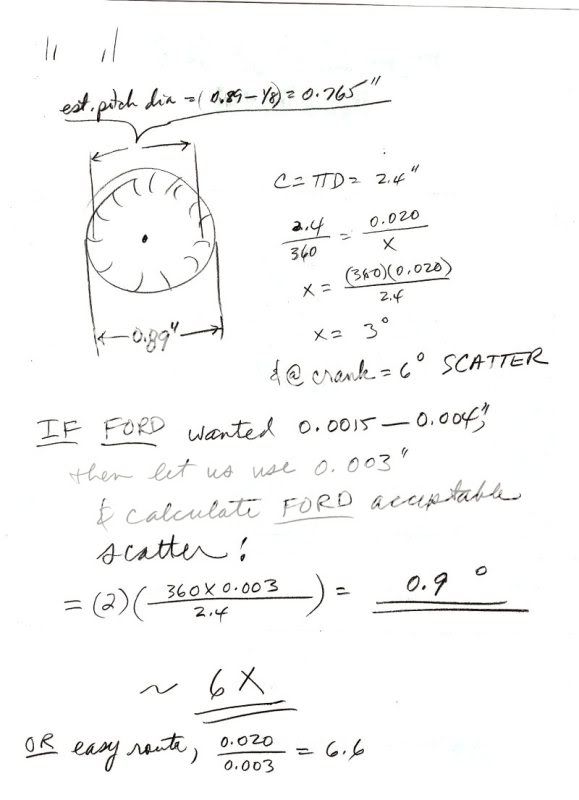 est. pitch dia = (0.89 - 1/8) = 0.765"
C = πD = 2.4"
2.4/360 = 0.020/X
X = (360)(0.020)/2.4
X = 3°
0.89"
& @ crank = 6° SCATTER
IF FORD wanted 0.0015 — 0.004",
then let us use 0.003"
& calculate FORD acceptable
scatter!
= (2)(360 X 0.003/2.4) = 0.9°
~ 6X
OR easy route, 0.020/0.003 = 6.6